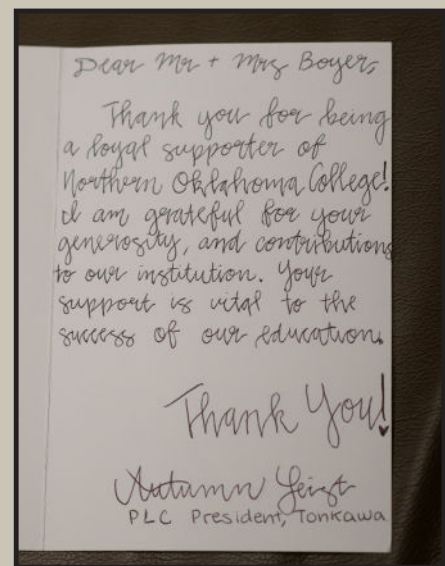 Dear Mr + Mrs Boyer,
Thank you for being
a loyal supporter of
Northern Oklahoma College!
I am grateful for your
generosity, and contributions
to our institution. Your
support is vital to the
success of our education.
Thank You!
Autumn
PLC President, Tonkawa